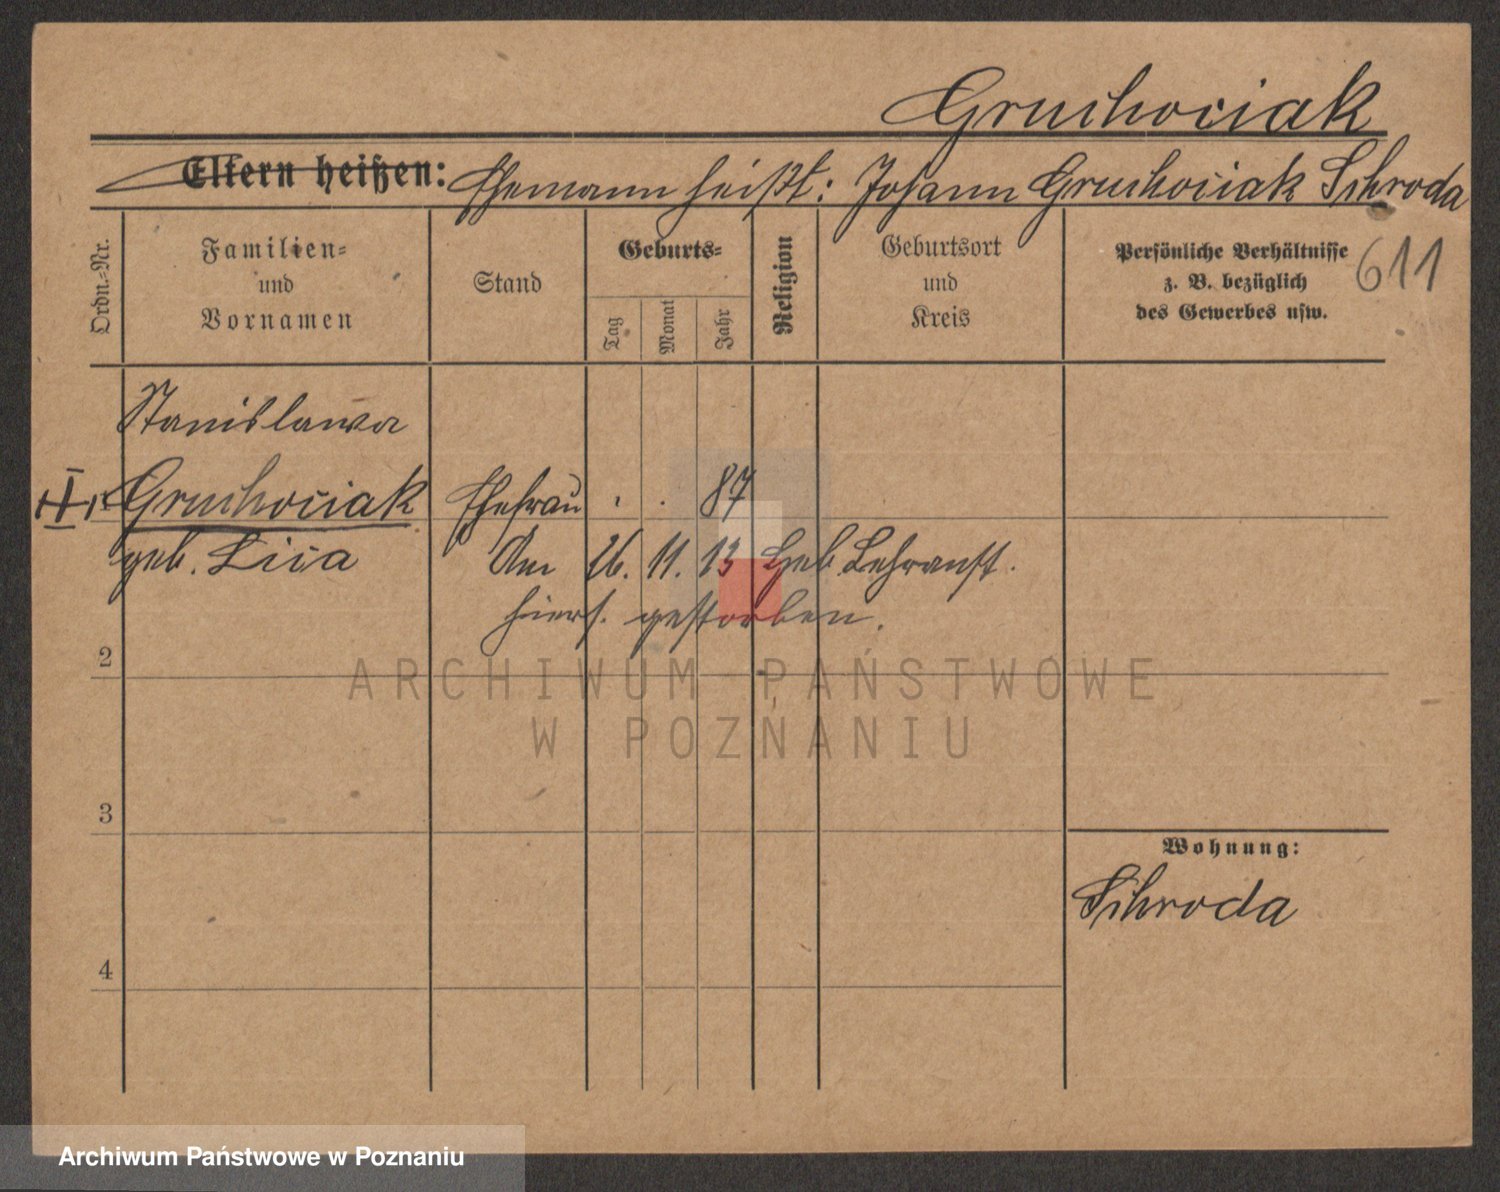 Gruchociak
Eltern heißen: Ehemann heißt: Johann Gruchociak Schroda
611
Ordn.-Nr.
Familien- und Vornamen
Stand
Geburts-
Tag
Monat
Jahr
Religion
Geburtsort und Kreis
Persönliche Verhältnisse
z. B. bezüglich
des Gewerbes usw.
Stanislawa
Gruchociak Ehefrau . . 87
geb. Lisa Am 26. 11. 13 Heb. Lehranst.
hiers. gestorben.
2
3
4
Wohnung:
Schroda
ARCHIWUM PAŃSTWOWE
W POZNANIU
Archiwum Państwowe w Poznaniu